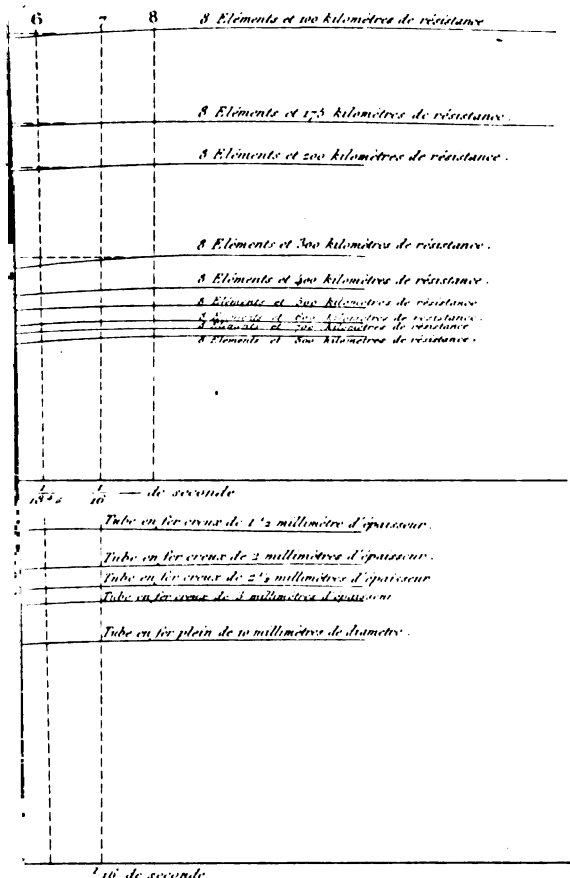 6 7 8 8 Eléments et 100 kilomètres de résistance
8 Eléments et 175 kilomètres de résistance.
8 Eléments et 200 kilomètres de résistance.
8 Eléments et 300 kilomètres de résistance.
8 Eléments et 400 kilomètres de résistance.
8 Eléments et 500 kilomètres de résistance
8 Eléments et 600 kilomètres de résistance.
8 Eléments et 700 kilomètres de résistance
8 Eléments et 800 kilomètres de résistance.
1/10 — de seconde
Tube en fer creux de 1 1/2 millimètre d'épaisseur.
Tube en fer creux de 2 millimètres d'épaisseur.
Tube en fer creux de 2 1/2 millimètres d'épaisseur
Tube en fer creux de 3 millimètres d'épaisseur
Tube en fer plein de 10 millimètres de diamètre.
de seconde